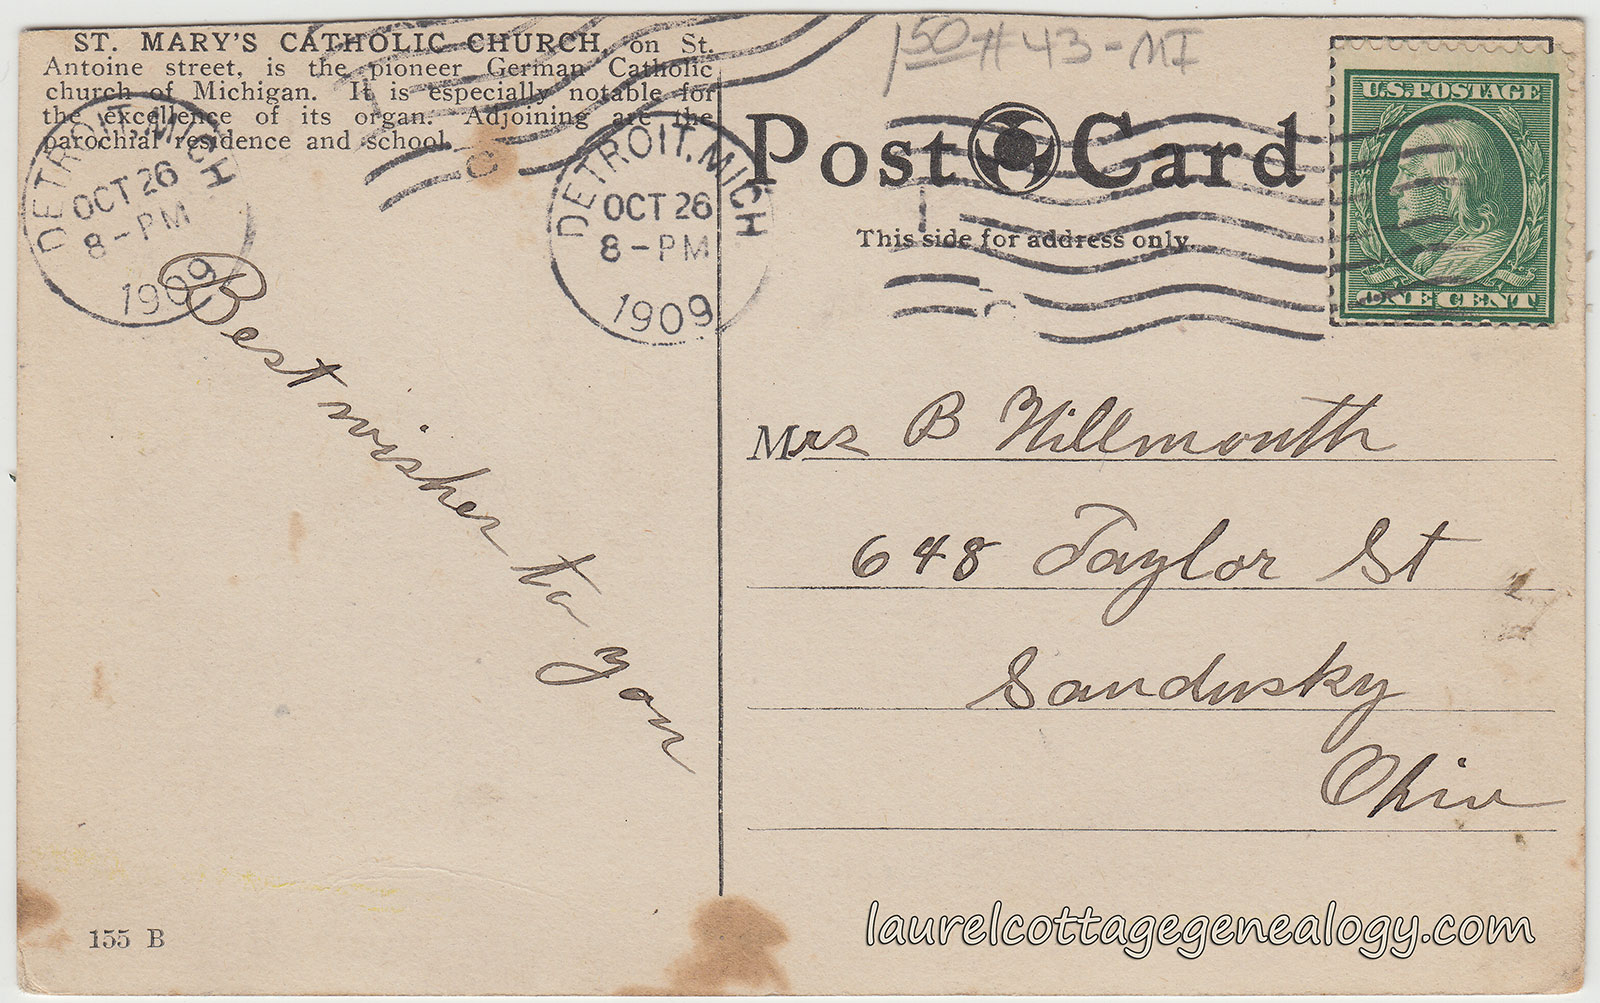 ST. MARY'S CATHOLIC CHURCH, on St.
Antoine street, is the pioneer German Catholic
church of Michigan. It is especially notable for
the excellence of its organ. Adjoining are the
parochial residence and school.
150 # 43 - MI
DETROIT, MICH
OCT 26
8 - PM
1909
DETROIT, MICH
OCT 26
8 - PM
1909
C
Post Card
This side for address only.
U.S. POSTAGE
ONE CENT
Best wishes to you
Mrs B Hillmouth
648 Taylor St
Sandusky
Ohio
155 B
laurelcottagegenealogy.com